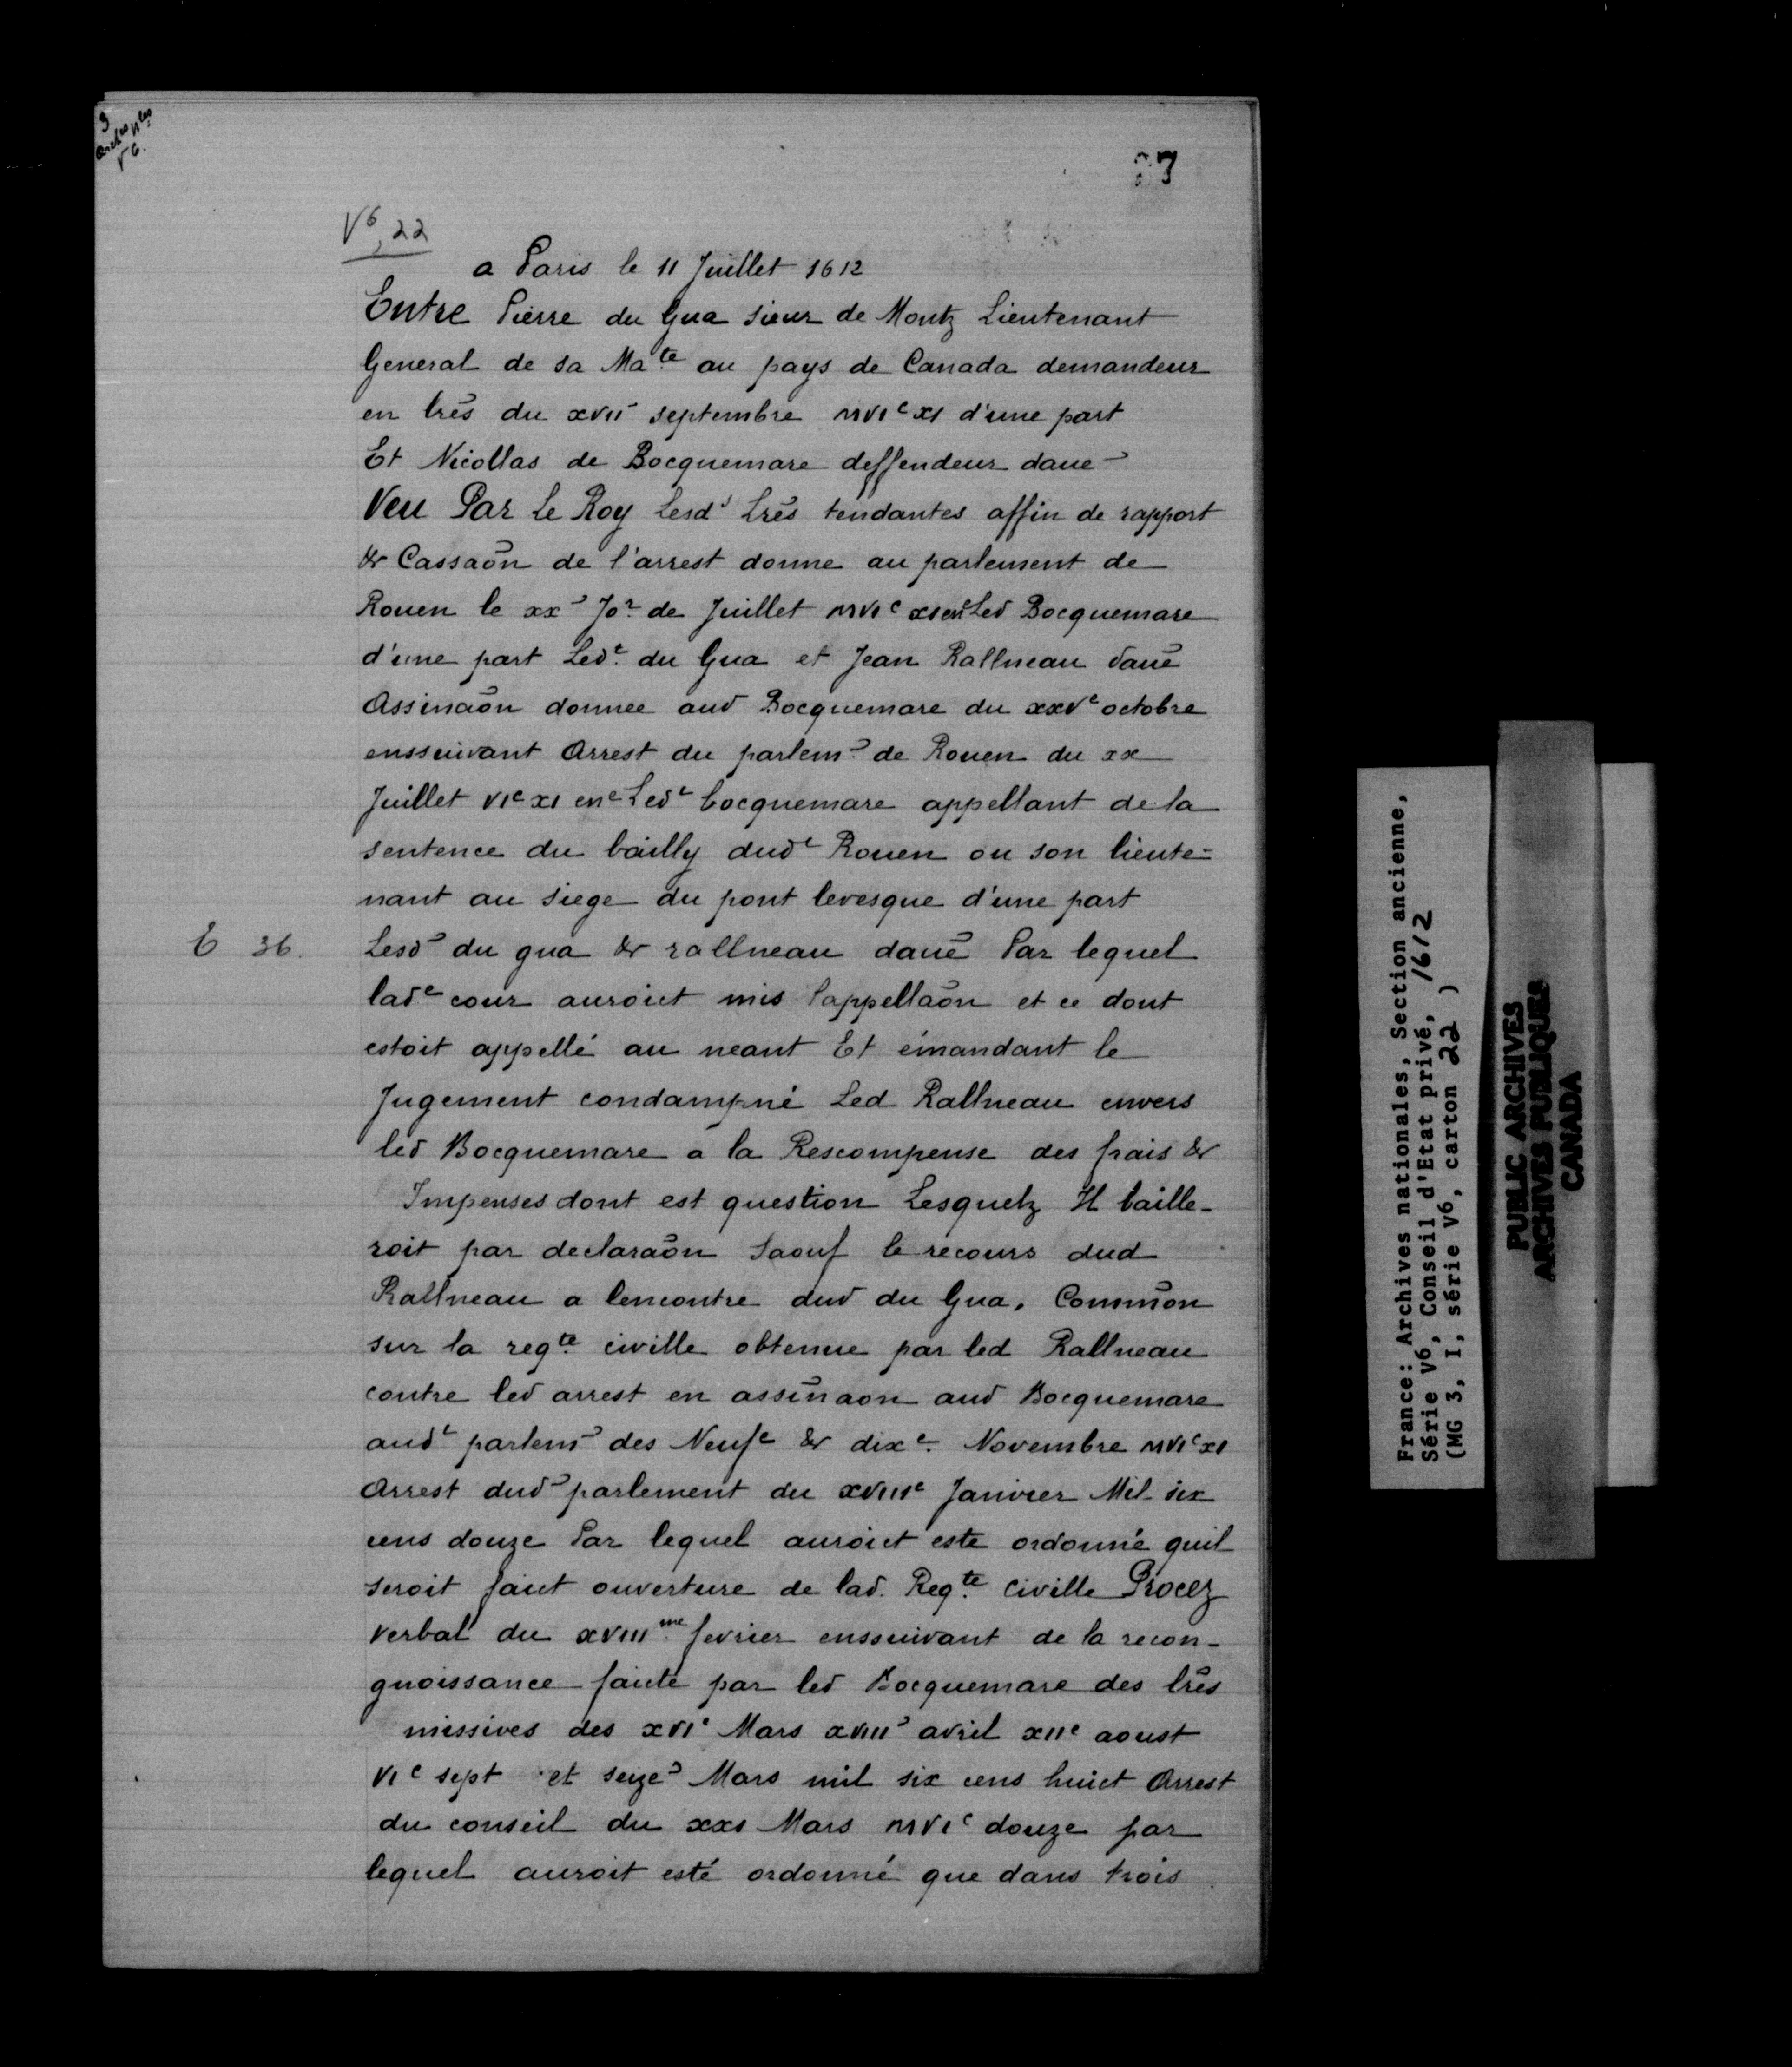 V6, 22
a Paris le 11 Juillet 1612
Entre Pierre du Gua sieur de Montz Lieutenant
General de sa Ma.te au pays de Canada demandeur
en lrēs du xvii septembre MVIc XI d'une part
Et Nicollas de Bocquemare deffendeur daue
Veu Par Le Roy Lesd Lrēs tendantes affin de rapport
& Cassaōn de l'arrest donne au parlement de
Rouen le xx Jor de Juillet MVIc XI Led Bocquemare
d'une part Ledt du Gua et Jean Rallneau daue
Assinaōn donnee aud Bocquemare du xxve octobre
enssuivant Arrest du parlem de Rouen du xx
Juillet VIc XI enc Ledt bocquemare appellant de la
sentence du bailly dudt Rouen ou son lieute=
nant au siege du pont levesque d'une part
E 36. Lesd du gua & rallneau daue Par lequel
lade cour auroict mis lappellaōn et ce dont
estoit appellé au neant Et émandant le
Jugement condampné Led Rallneau envers
led Bocquemare a la Rescompense des frais &
Impenses dont est question Lesquelz Il baille-
roit par declaraōn saouf le recours dud
Rallneau a lencontre dud du Gua. Commōn
sur la reqte civille obtenue par led Rallneau
contre led arrest en assinaon aud Bocquemare
audt parlem des Neufe & dixe Novembre MVIc XI
Arrest dud parlement du XVIIIe Janvier Mil six
cens douze Par lequel auroict este ordonné quil
seroit faict ouverture de lad. Reqte Civille Procez
verbal du XVIIIme fevrier enssuivant de la recon-
gnoissance faicte par led Bocquemare des lrēs
missives des XVIe Mars XVIII avril XIIe aoust
VIc sept et seize Mars mil six cens huict Arrest
du conseil du XXI Mars MVIc douze par
lequel auroit esté ordonné que dans trois
France: Archives nationales, Section ancienne,
Série V6, Conseil d'Etat privé, 1612
(MG 3, I, série V6, carton 22 )
PUBLIC ARCHIVES
ARCHIVES PUBLIQUES
CANADA